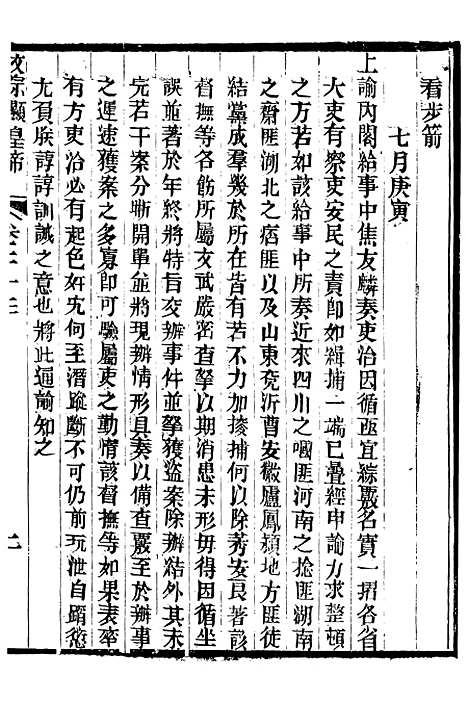 看步箭
七月庚寅
上諭內閣給事中焦友麟奏吏治因循亟宜綜覈名實一摺各省
大吏有察吏安民之責即如緝捕一端已疊經申諭力求整頓
之方若如該給事中所奏近來四川之嘓匪河南之捻匪湖南
之齋匪湖北之痞匪以及山東兗沂曹安徽廬鳳潁地方匪徒
結黨成羣幾於所在皆有若不力加搜捕何以除莠安良著該
督撫等各飭所屬文武嚴密查拏以期消患未形毋得因循坐
誤並著於年終將特旨交辦事件並拏獲盜案除辦結外其未
完若干案分晣開單並將現辦情形具奏以備查覈至於辦事
之遲速獲案之多寡即可驗屬吏之勤惰該督撫等如果表率
有方吏治必有起色奸宄何至潛蹤斷不可仍前玩泄自蹈愆
尤負朕諄諄訓誡之意也將此通諭知之
宗顯皇帝